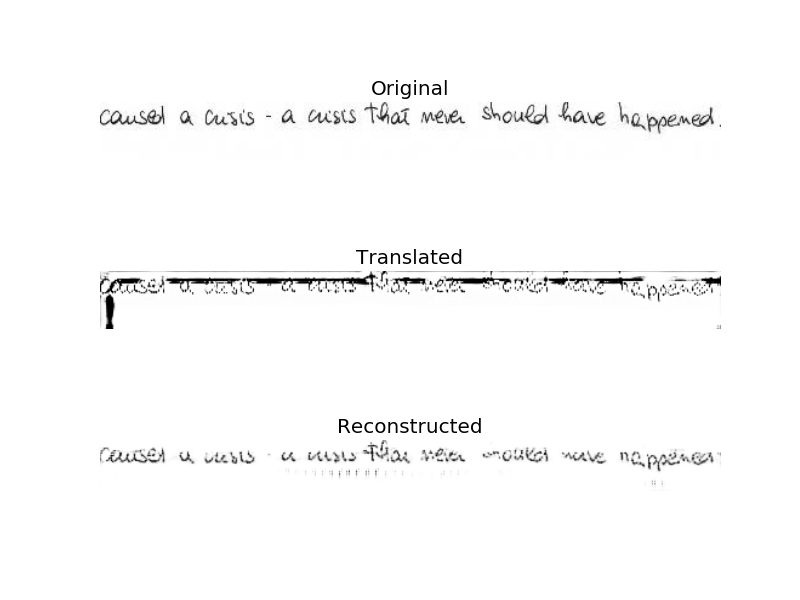 Original
caused a crisis - a crisis that never should have happened.
Translated
caused a crisis a crisis that never should have happened
Reconstructed
caused a crisis - a crisis that never should have happened